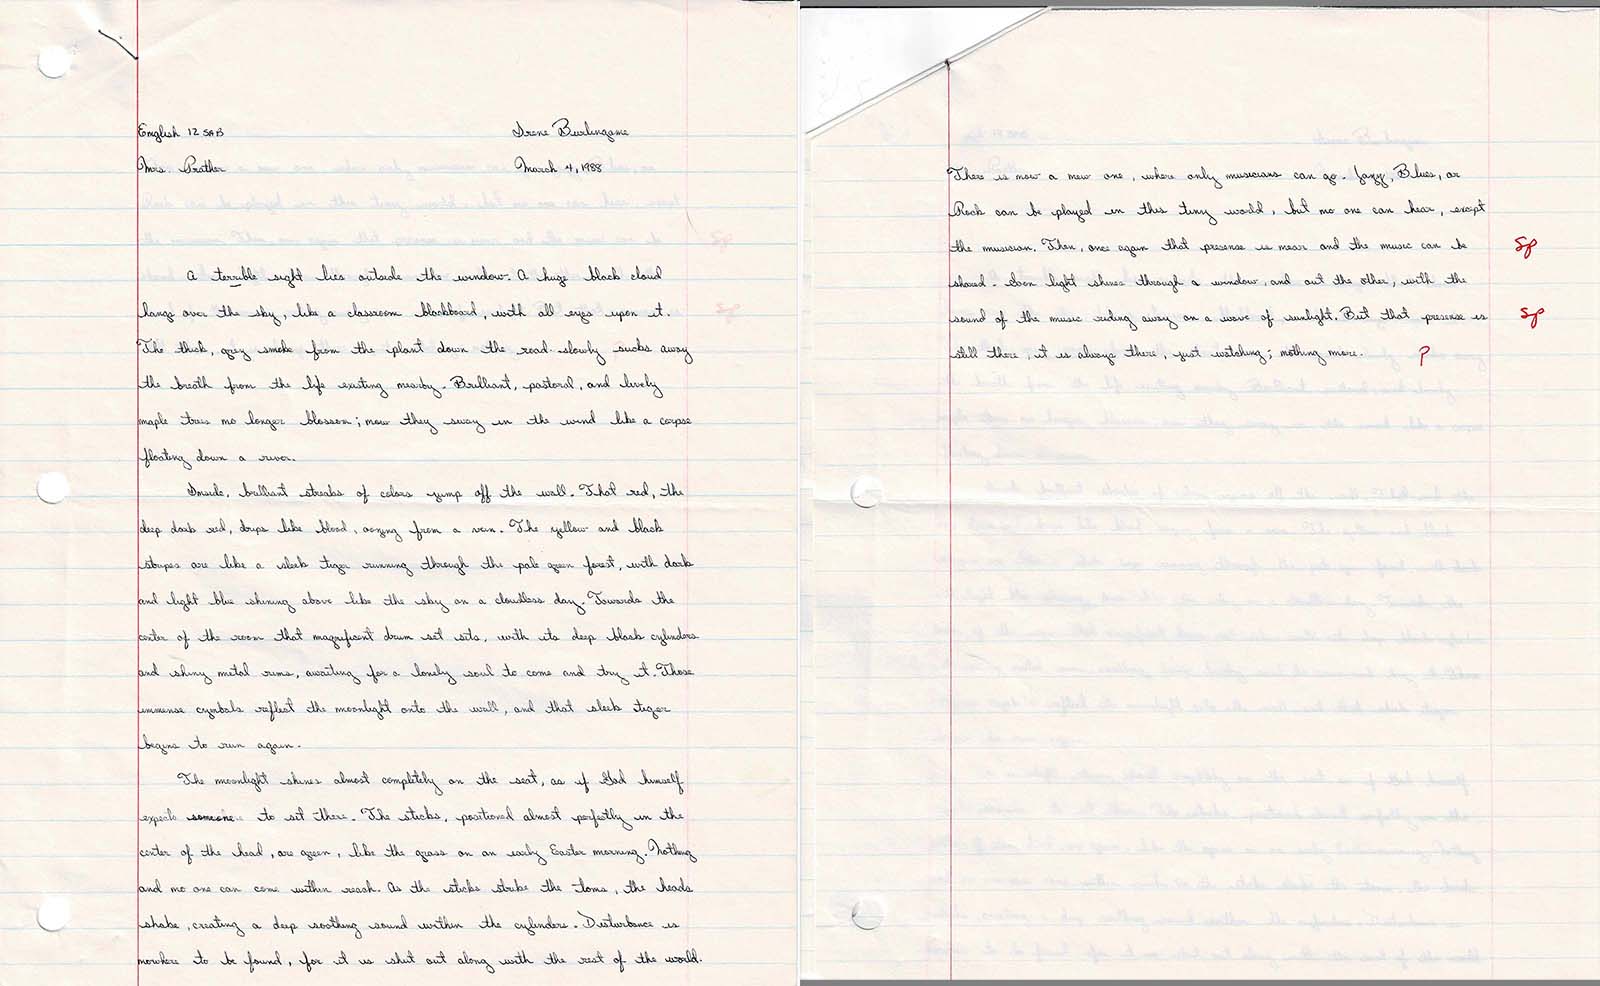 English 12 SAB
Irene Burlingame
Mrs. Prather
March 4, 1988
A terrible sight lies outside the window. A huge black cloud
hangs over the sky, like a classroom blackboard, with all eyes upon it.
The thick, grey smoke from the plant down the road slowly sucks away
the breath from the life existing nearby. Brilliant, pastoral, and lively
maple trees no longer blossom; now they sway in the wind like a corpse
floating down a river.
Inside, brilliant streaks of colors jump off the wall. That red, the
deep dark red, drips like blood, oozing from a vein. The yellow and black
stripes are like a sleek tiger running through the pale green forest, with dark
and light blue shining above like the sky on a cloudless day. Towards the
center of the room that magnificent drum set sits, with its deep black cylinders
and shiny metal rims, awaiting for a lonely soul to come and try it. Those
immense cymbals reflect the moonlight onto the wall, and that sleek tiger
begins to run again.
The moonlight shines almost completely on the seat, as if God himself
expects someone to sit there. The sticks, positioned almost perfectly in the
center of the head, are green, like the grass on an early Easter morning. Nothing
and no one can come within reach. As the sticks strike the toms, the heads
shake, creating a deep soothing sound within the cylinders. Disturbance is
nowhere to be found, for it is shut out along with the rest of the world.
There is now a new one, where only musicians can go. Jazz, Blues, or
Rock can be played in this tiny world, but no one can hear, except
the musician. Then, once again that presense is near and the music can be
Sp
shared. Even light shines through a window, and out the other, with the
sound of the music riding away on a wave of sunlight. But that presense is
Sp
still there, it is always there, just watching; nothing more.
?